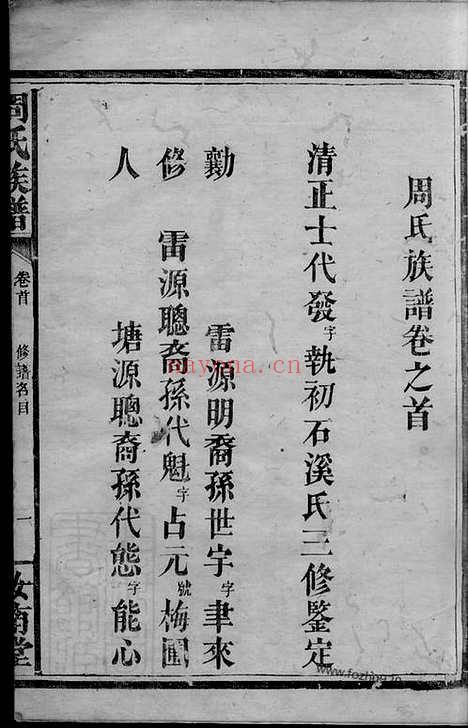 周氏族譜卷之首
清正士代發字執初石溪氏三修鑒定
勷 雷源明裔孫世宇字聿來
修 雷源聰裔孫代魁字占元號梅圃
人 塘源聰裔孫代態字能心
周氏族譜 卷首 修譜名目 一 汝南堂
nayona.cn
www.fozhang.to